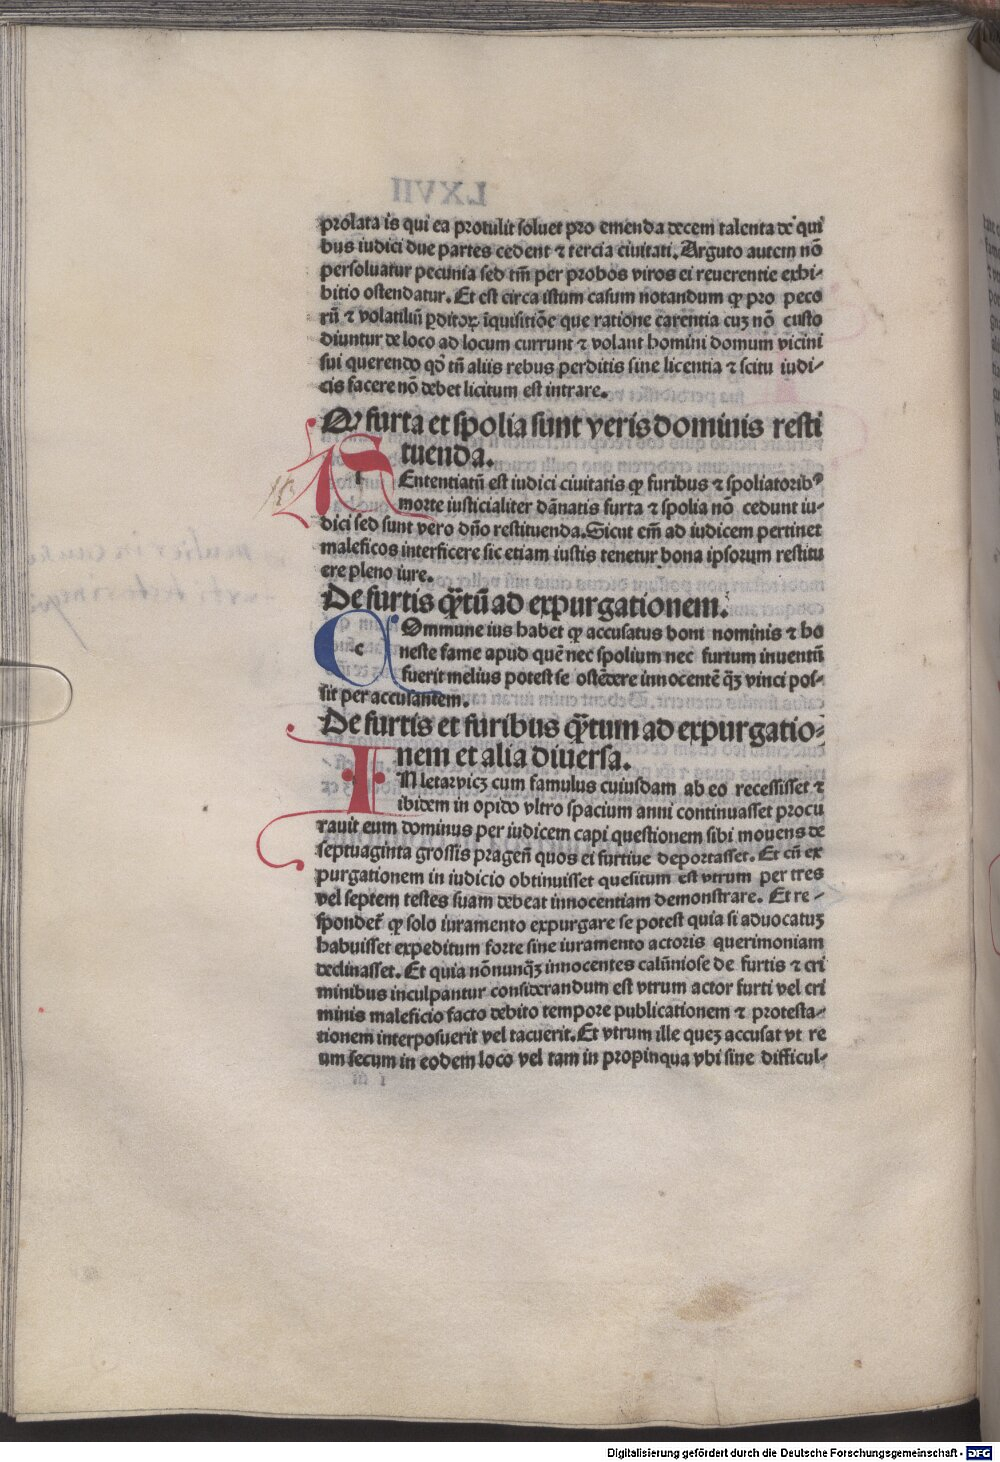 prolata is qui ea protulit soluet pro emenda decem talenta de qui
bus iudici due partes cedent ⁊ tercia ciuitati. Arguto autem nō
persoluatur pecunia sed tm̄ per probos viros ei reuerentie exhi-
bitio ostendatur. Et est circa istum casum notandum ꝙ pro peco
rū ⁊ volatiliū ꝑditoꝝ īquisitiōe que ratione carentia cuʒ nō custo
diuntur de loco ad locum currunt ⁊ volant homini domum vicini
sui querendo qd̓ tn̄ aliis rebus perditis sine licentia ⁊ scitu iudi-
cis facere nō debet licitum est intrare.
Ꝙ furta et spolia sunt veris dominis resti
tuenda.
Ententiatū est iudici ciuitatis ꝙ furibus ⁊ spoliatoribꝰ
morte iusticialiter dānatis furta ⁊ spolia nō cedunt iu-
dici sed sunt vero dn̄o restituenda. Sicut em̄ ad iudicem pertinet
maleficos interficere sic etiam iustis tenetur bona ipsorum restitu
ere pleno iure.
De furtis qͣ̄tū ad expurgationem.
c Ommune ius habet ꝙ accusatus boni nominis ⁊ ho
neste fame apud quē nec spolium nec furtum inuentū
fuerit melius potest se ostēdere innocentē q̄ʒ vinci pos-
sit per accusantem.
De furtis et furibus qͣ̄tum ad expurgatio-
nem et alia diuersa.
IN letarvicʒ cum famulus cuiusdam ab eo recessisset ⁊
ibidem in opido vltro spacium anni continuasset procu
rauit eum dominus per iudicem capi questionem sibi mouens de
septuaginta grossis pragen̄ quos ei furtiue deportasset. Et cū ex
purgationem in iudicio obtinuisset quesitum est vtrum per tres
vel septem testes suam debeat innocentiam demonstrare. Et re-
spondet̄ ꝙ solo iuramento expurgare se potest quia si aduocatuʒ
habuisset expeditum forte sine iuramento actoris querimoniam
declinasset. Et quia nōnunq̄ʒ innocentes calūniose de furtis ⁊ cri
minibus inculpantur considerandum est vtrum actor furti vel cri
minis maleficio facto debito tempore publicationem ⁊ protesta-
tionem interposuerit vel tacuerit. Et vtrum ille queʒ accusat vt re
um secum in eodem loco vel tam in propinqua vbi sine difficul-
Digitalisierung gefördert durch die Deutsche Forschungsgemeinschaft - DFG